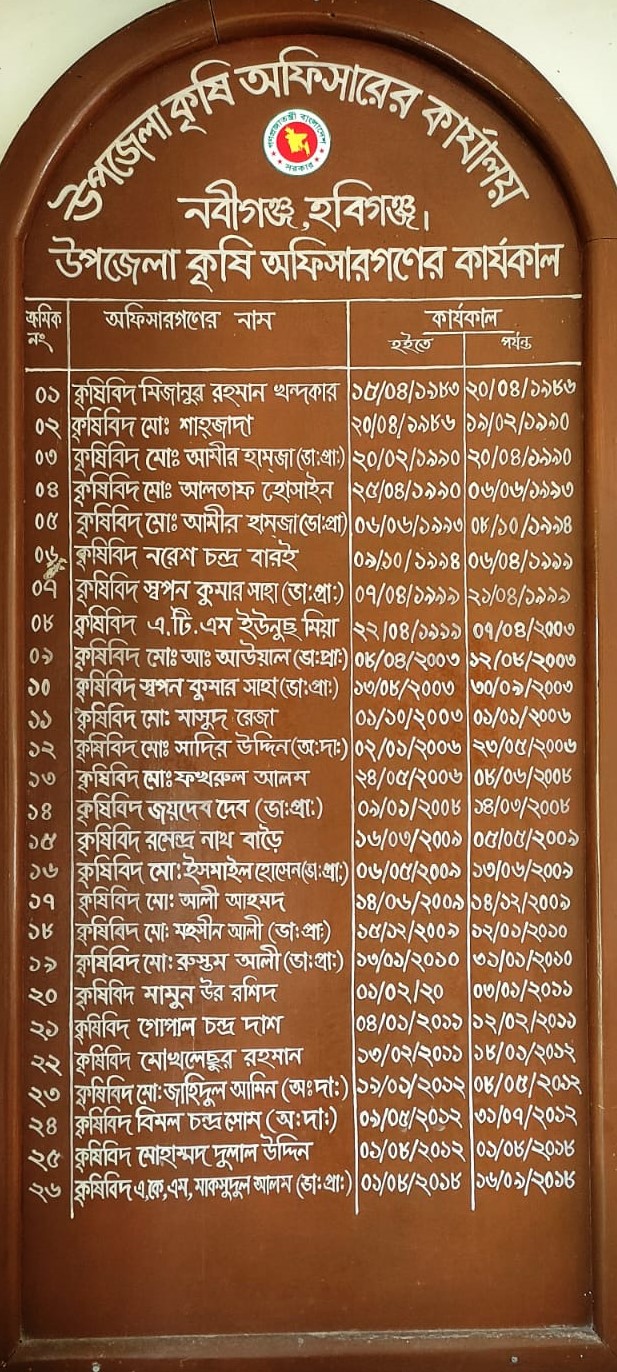 উপজেলা কৃষি অফিসারের কার্যালয়
গণপ্রজাতন্ত্রী বাংলাদেশ
সরকার
নবীগঞ্জ, হবিগঞ্জ।
উপজেলা কৃষি অফিসারগণের কার্যকাল
ক্রমিক নং অফিসারগণের নাম কার্যকাল
হইতে পর্যন্ত
০১ কৃষিবিদ মিজানুর রহমান খন্দকার ১৫/০৪/১৯৮৩ ২০/০৪/১৯৮৬
০২ কৃষিবিদ মোঃ শাহ্জাদা ২০/০৪/১৯৮৬ ১৯/০২/১৯৯০
০৩ কৃষিবিদ মোঃ আমীর হাম্জা (ভা:প্রা:) ২০/০২/১৯৯০ ২০/০৪/১৯৯০
০৪ কৃষিবিদ মোঃ আলতাফ হোসাইন ২৫/০৪/১৯৯০ ০৬/০৬/১৯৯৩
০৫ কৃষিবিদ মোঃ আমীর হাম্জা (ভা:প্রা) ০৬/০৬/১৯৯৩ ০৮/১০/১৯৯৪
০৬ কৃষিবিদ নরেশ চন্দ্র বারই ০৯/১০/১৯৯৪ ০৬/০৪/১৯৯৯
০৭ কৃষিবিদ স্বপন কুমার সাহা (ভা:প্রা:) ০৭/০৪/১৯৯৯ ২১/০৪/১৯৯৯
০৮ কৃষিবিদ এ.টি.এম ইউনুছ মিয়া ২২/০৪/১৯৯৯ ০৭/০৪/২০০৩
০৯ কৃষিবিদ মোঃ আঃ আউয়াল (ভা:প্রা:) ০৮/০৪/২০০৩ ১২/০৮/২০০৩
১০ কৃষিবিদ স্বপন কুমার সাহা (ভা:প্রা:) ১৩/০৮/২০০৩ ৩০/০৯/২০০৩
১১ কৃষিবিদ মো: মাসুদ রেজা ০১/১০/২০০৩ ০১/০১/২০০৬
১২ কৃষিবিদ মোঃ সাদির উদ্দিন (অ:দা:) ০২/০১/২০০৬ ২৩/০৫/২০০৬
১৩ কৃষিবিদ মোঃ ফখরুল আলম ২৪/০৫/২০০৬ ০৮/০৬/২০০৮
১৪ কৃষিবিদ জয়দেব দেব (ভা:প্রা:) ০৯/০১/২০০৮ ১৪/০৩/২০০৮
১৫ কৃষিবিদ রমেন্দ্র নাথ বাড়ৈ ১৬/০৩/২০০৯ ০৫/০৫/২০০৯
১৬ কৃষিবিদ মো: ইসমাইল হোসেন (ভা:প্রা:) ০৬/০৫/২০০৯ ১৩/০৬/২০০৯
১৭ কৃষিবিদ মো: আলী আহমদ ১৪/০৬/২০০৯ ১৪/১২/২০০৯
১৮ কৃষিবিদ মো: মহসীন আলী (ভা:প্রা:) ১৫/১২/২০০৯ ১২/০১/২০১০
১৯ কৃষিবিদ মো: রুস্তম আলী (ভা:প্রা:) ১৩/০১/২০১০ ৩১/০১/২০১০
২০ কৃষিবিদ মামুন উর রশিদ ০১/০২/২০ ০৩/০১/২০১১
২১ কৃষিবিদ গোপাল চন্দ্র দাশ ০৪/০১/২০১১ ১২/০২/২০১১
২২ কৃষিবিদ মোখলেছুর রহমান ১৩/০২/২০১১ ১৮/০১/২০১২
২৩ কৃষিবিদ মো: জাহিদুল আমিন (অঃদা:) ১৯/০১/২০১২ ০৮/০৫/২০১২
২৪ কৃষিবিদ বিমল চন্দ্র সোম (অ:দা:) ০৯/০৫/২০১২ ৩১/০৭/২০১২
২৫ কৃষিবিদ মোহাম্মদ দুলাল উদ্দিন ০১/০৮/২০১২ ০১/০৮/২০১৮
২৬ কৃষিবিদ এ,কে,এম, মাকসুদুল আলম (ভা:প্রা:) ০১/০৮/২০১৮ ১৬/০৯/২০১৮